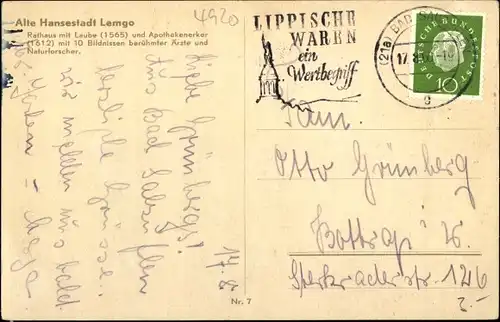 Alte Hansestadt Lemgo
Rathaus mit Laube (1565) und Apothekenerker
(1612) mit 10 Bildnissen berühmter Ärzte und
Naturforscher.
4920
LIPPISCHE
WAREN
ein
Wertbegriff
(21a) BAD
17.8.
DEUTSCHE BUNDESPOST
10
17.8.
Liebe Grünbergs!
Aus Bad Salzuflen
herzliche Grüsse.
wir melden uns bald
Fam.
Otto Grünberg
Bottrop i. W.
Sterkraderstr. 126
2.-
Nr. 7